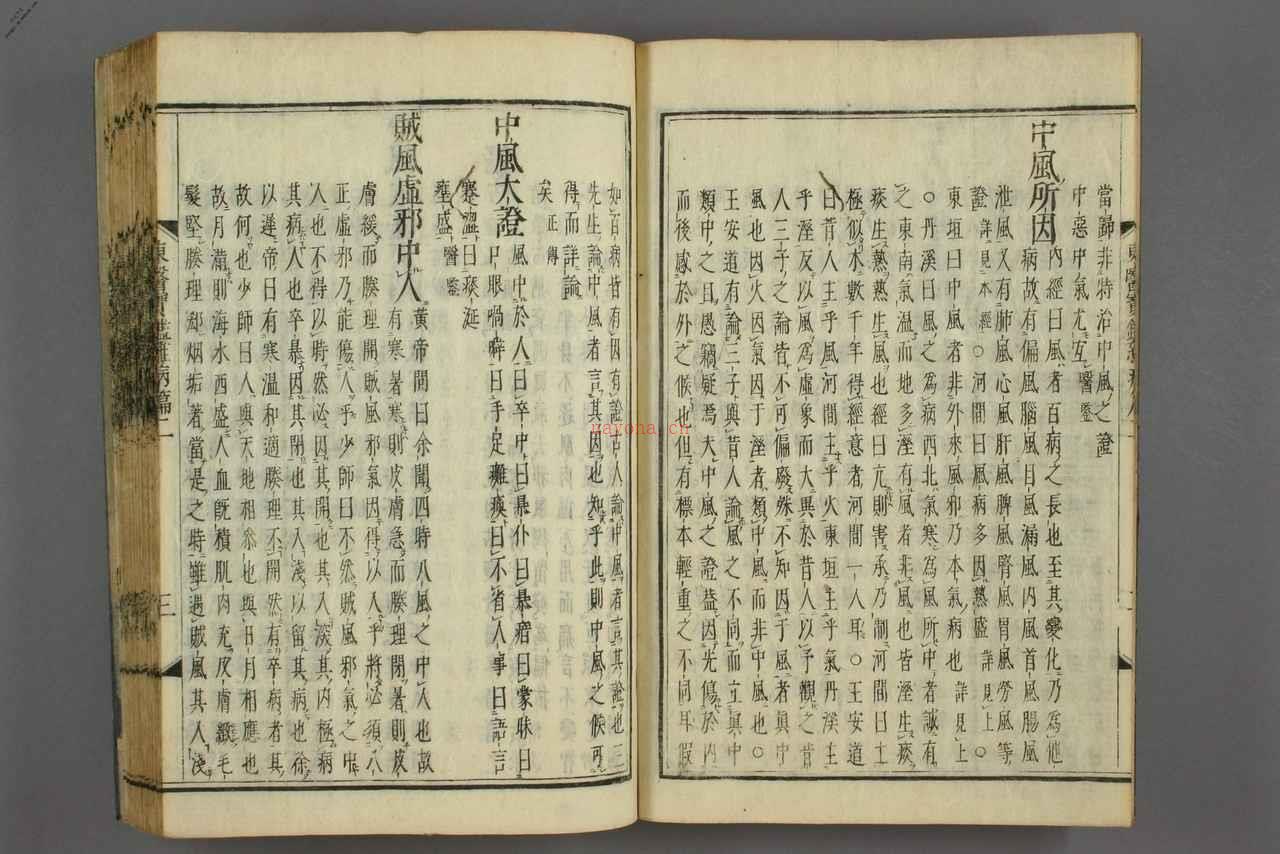 當歸非特治中風之證
中惡中氣尤宜醫鑒
中風所因內經曰風者百病之長也至其變化乃為他
病故有偏風腦風目風漏風內風首風腸風
泄風又有肺風心風肝風脾風腎風胃風勞風等
證詳見本經○河間曰風病多因熱盛詳見上○
東垣曰中風者非外來風邪乃本氣病也詳見上
○丹溪曰風之為病西北氣寒為風所中者誠有
之東南氣溫而地多溼有風者非風也皆溼生痰
痰生熱熱生風也經曰亢則害承乃制河間曰土
極似水數千年得經意者河間一人耳○王安道
曰昔人主乎風河間主乎火東垣主乎氣丹溪主
乎溼反以風為虛象而大異於昔人以予觀之昔
人三子之論皆不可偏廢殊不知因于風者真中
風也因火因氣因于溼者類中風而非中風也○
王安道有論三子與昔人論風之不同而立真中
類中之目愚竊疑焉夫中風之證盖因先傷於內
而後感於外之候也但有標本輕重之不同耳假
如百病皆有因有證古人論中風者言其證也三
先生論中風者言其因也知乎此則中風之候可
得而詳論
矣正傳
中風大證風中於人曰卒中曰暴仆曰暴瘖曰蒙昧曰
口眼喎噼曰手足癱瘓曰不省人事曰語言
蹇澁曰痰涎
壅盛醫鑒
賊風虛邪中人黃帝問曰余聞四時八風之中人也故
有寒暑寒則皮膚急而腠理閉暑則皮
膚緩而腠理開賊風邪氣因得以入乎將必須八
正虛邪乃能傷人乎少師曰不然賊風邪氣之中
人也不得以時然必因其開也其入深其內極病
其病人也卒暴因其閉也其入淺以留其病也徐
以遲帝曰有寒溫和適腠理不開然有卒病者其
故何也少師曰人與天地相參也與日月相應也
故月滿則海水西盛人血既積肌肉充皮膚緻毛
髮堅腠理郄烟垢著當是之時雖遇賊風其入淺
東醫寶鑑雜病篇二
三
nayona.cn